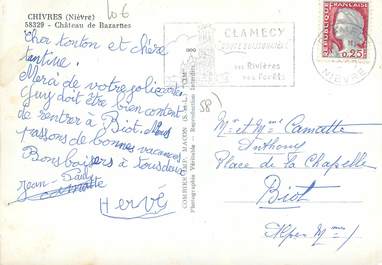 CHIVRES (Nièvre)
58329 - Château de Bazarnes
106
Cher tonton et chère
tantine.
Merci de votre jolie carte.
Guy doit être bien content
de rentrer à Biot. Nous
passons de bonnes vacances
Bons baisers à tous deux
Jean-Paul
Hervé
COMBIER IMP. MACON
Photographie Véritable - Reproduction Interdite
CLAMECY
ses Rivières
ses Forêts
0,25
NIEVRE
58
Mr et Mme Camatte
Anthony
Place de la Chapelle
Biot
Alpes Mmes